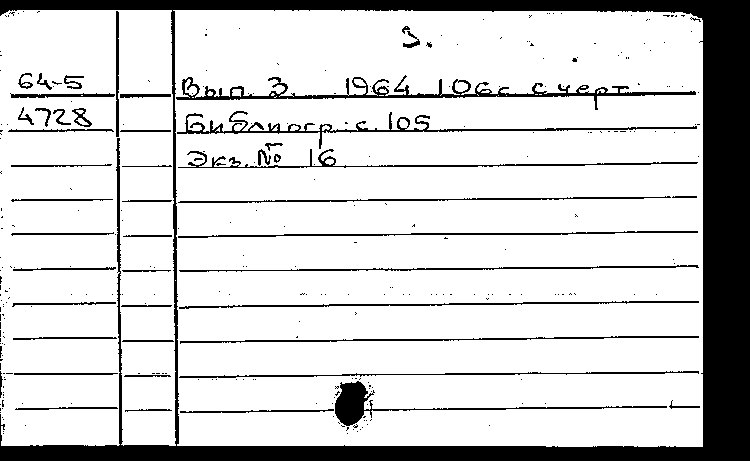 3.
64-5 Вып. 3. 1964 106с с черт.
4728 Библиогр: с. 105
Экз. № 16